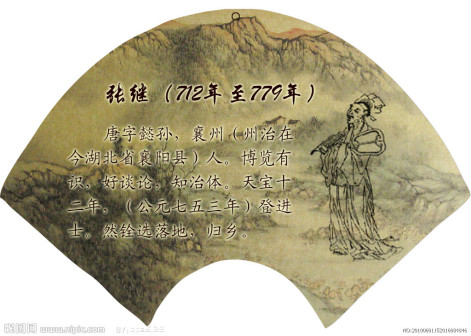 张继（712年至779年）
唐字懿孙，襄州（州治在
今湖北省襄阳县）人。博览有
识，好谈论，知治体。天宝十
二年，（公元七五三年）登进
士。然铨选落地，归乡。
昵图网
www.nipic.com